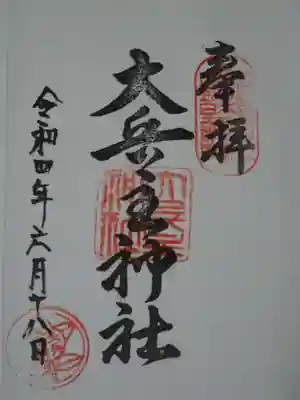 奉拝
大兵主神社
令和四年六月十八日